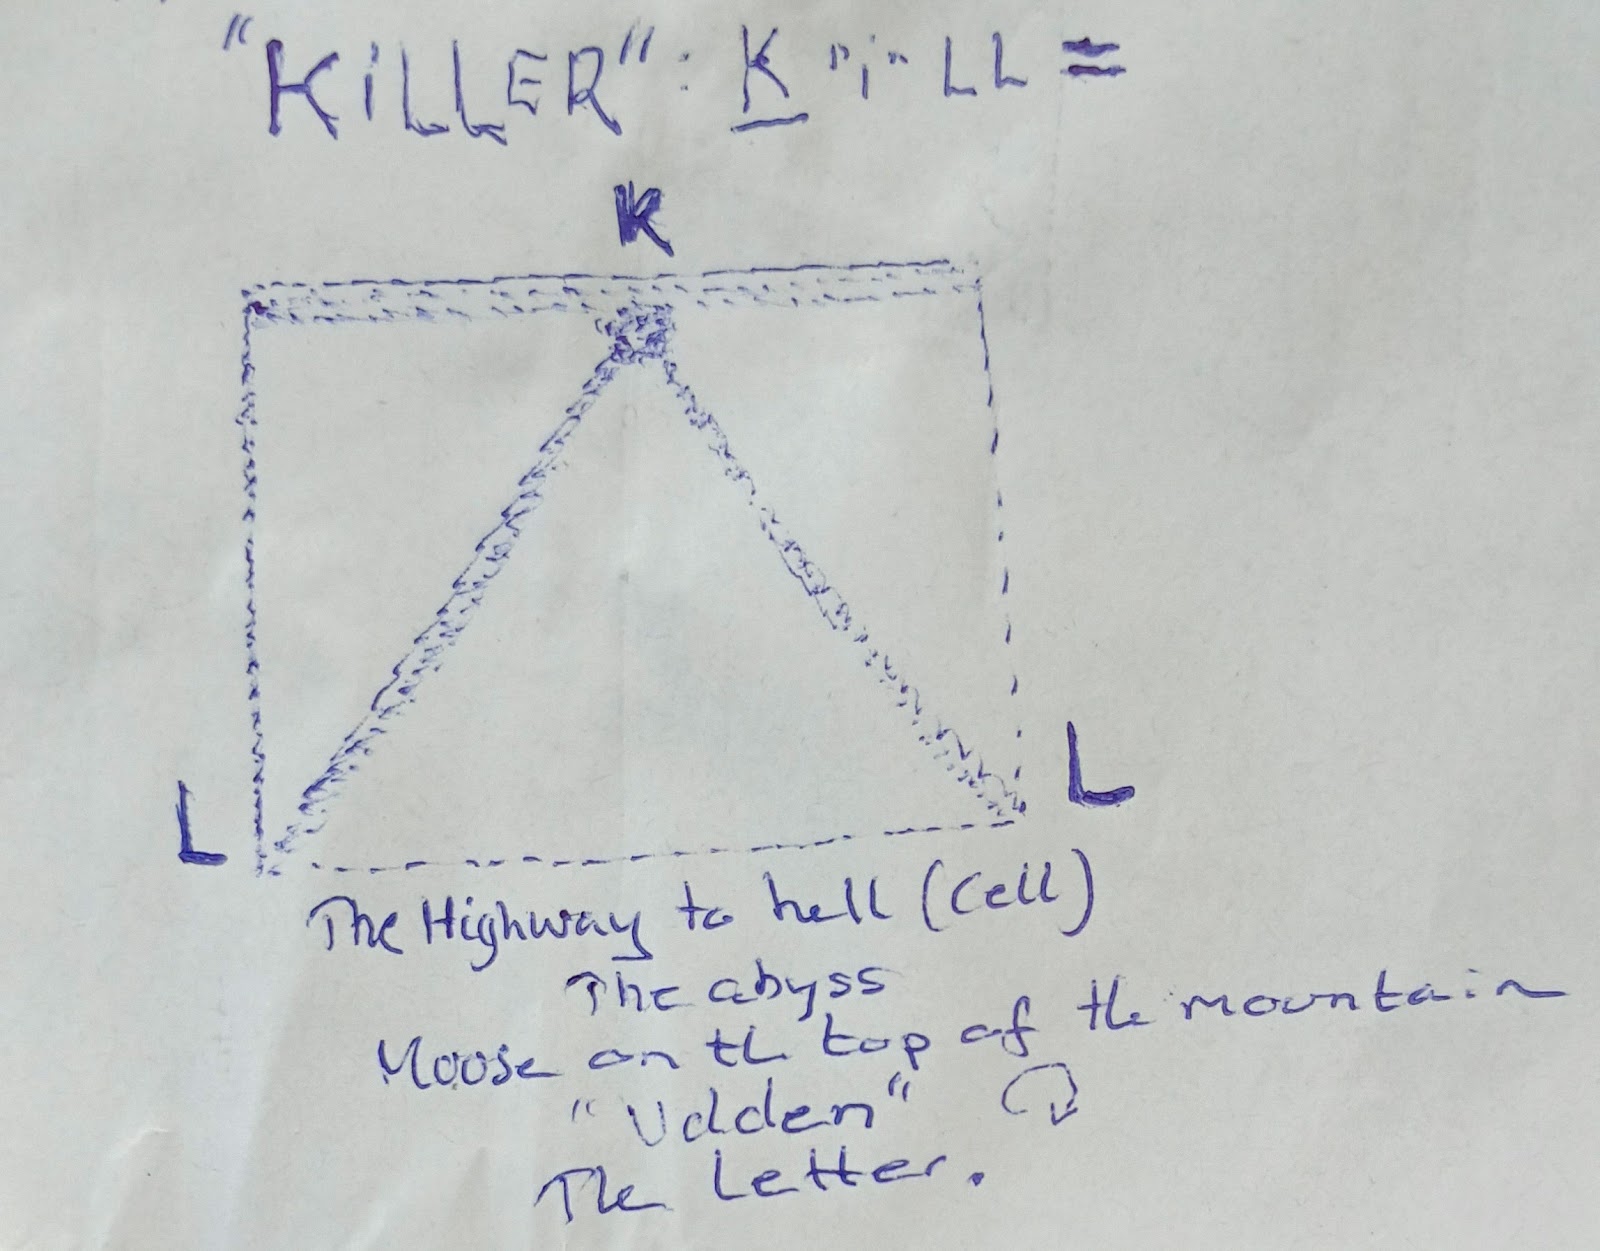 "KiLLER": K "i" LL =
K
L
L
The Highway to hell (Cell)
The abyss
Moose on the top of the mountain
"Udden"
The Letter.